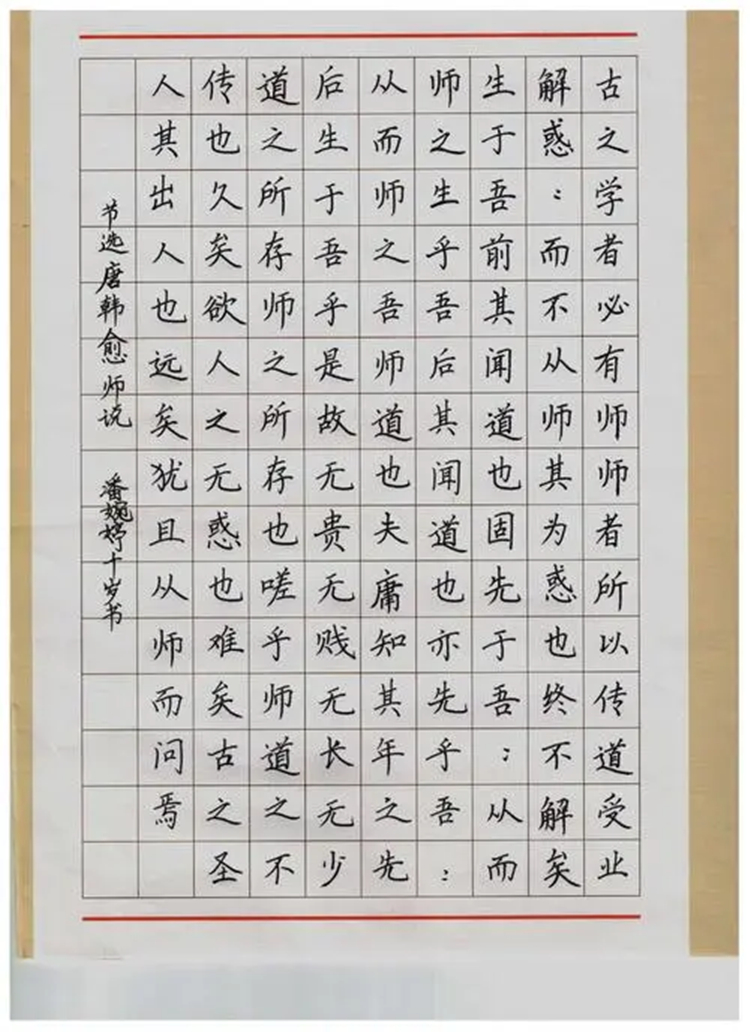 古之学者必有师师者所以传道受业
解惑：而不从师其为惑也终不解矣
生于吾前其闻道也固先于吾：从而
师之生乎吾后其闻道也亦先乎吾：
从而师之吾师道也夫庸知其年之先
后生于吾乎是故无贵无贱无长无少
道之所存师之所存也嗟乎师道之不
传也久矣欲人之无惑也难矣古之圣
人其出人也远矣犹且从师而问焉
节选唐韩愈师说 潘婉婷十岁书